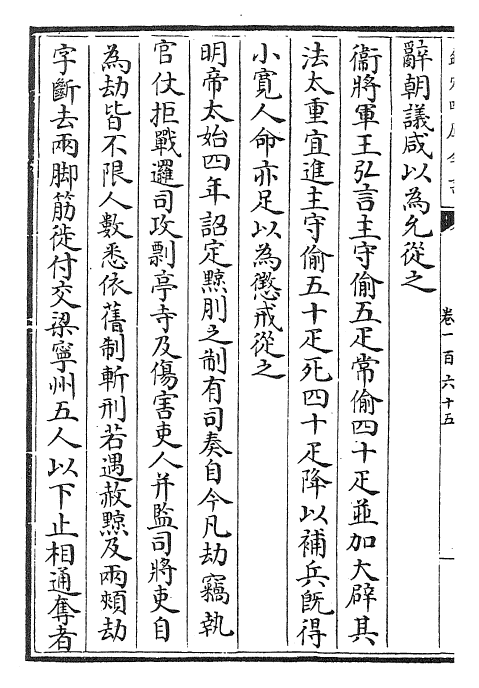 欽定四庫全書
卷一百六十五
辭朝議咸以為允從之
衞將軍王弘言主守偷五疋常偷四十疋並加大辟其
法太重宜進主守偷五十疋死四十疋降以補兵旣得
小寛人命亦足以為懲戒從之
明帝太始四年詔定黥刖之制有司奏自今凡劫竊執
官仗拒戰邏司攻剽亭寺及傷害吏人并監司將吏自
為劫皆不限人數悉依舊制斬刑若遇赦黥及兩頰劫
字斷去兩脚筋徙付交梁寧州五人以下止相逼奪者